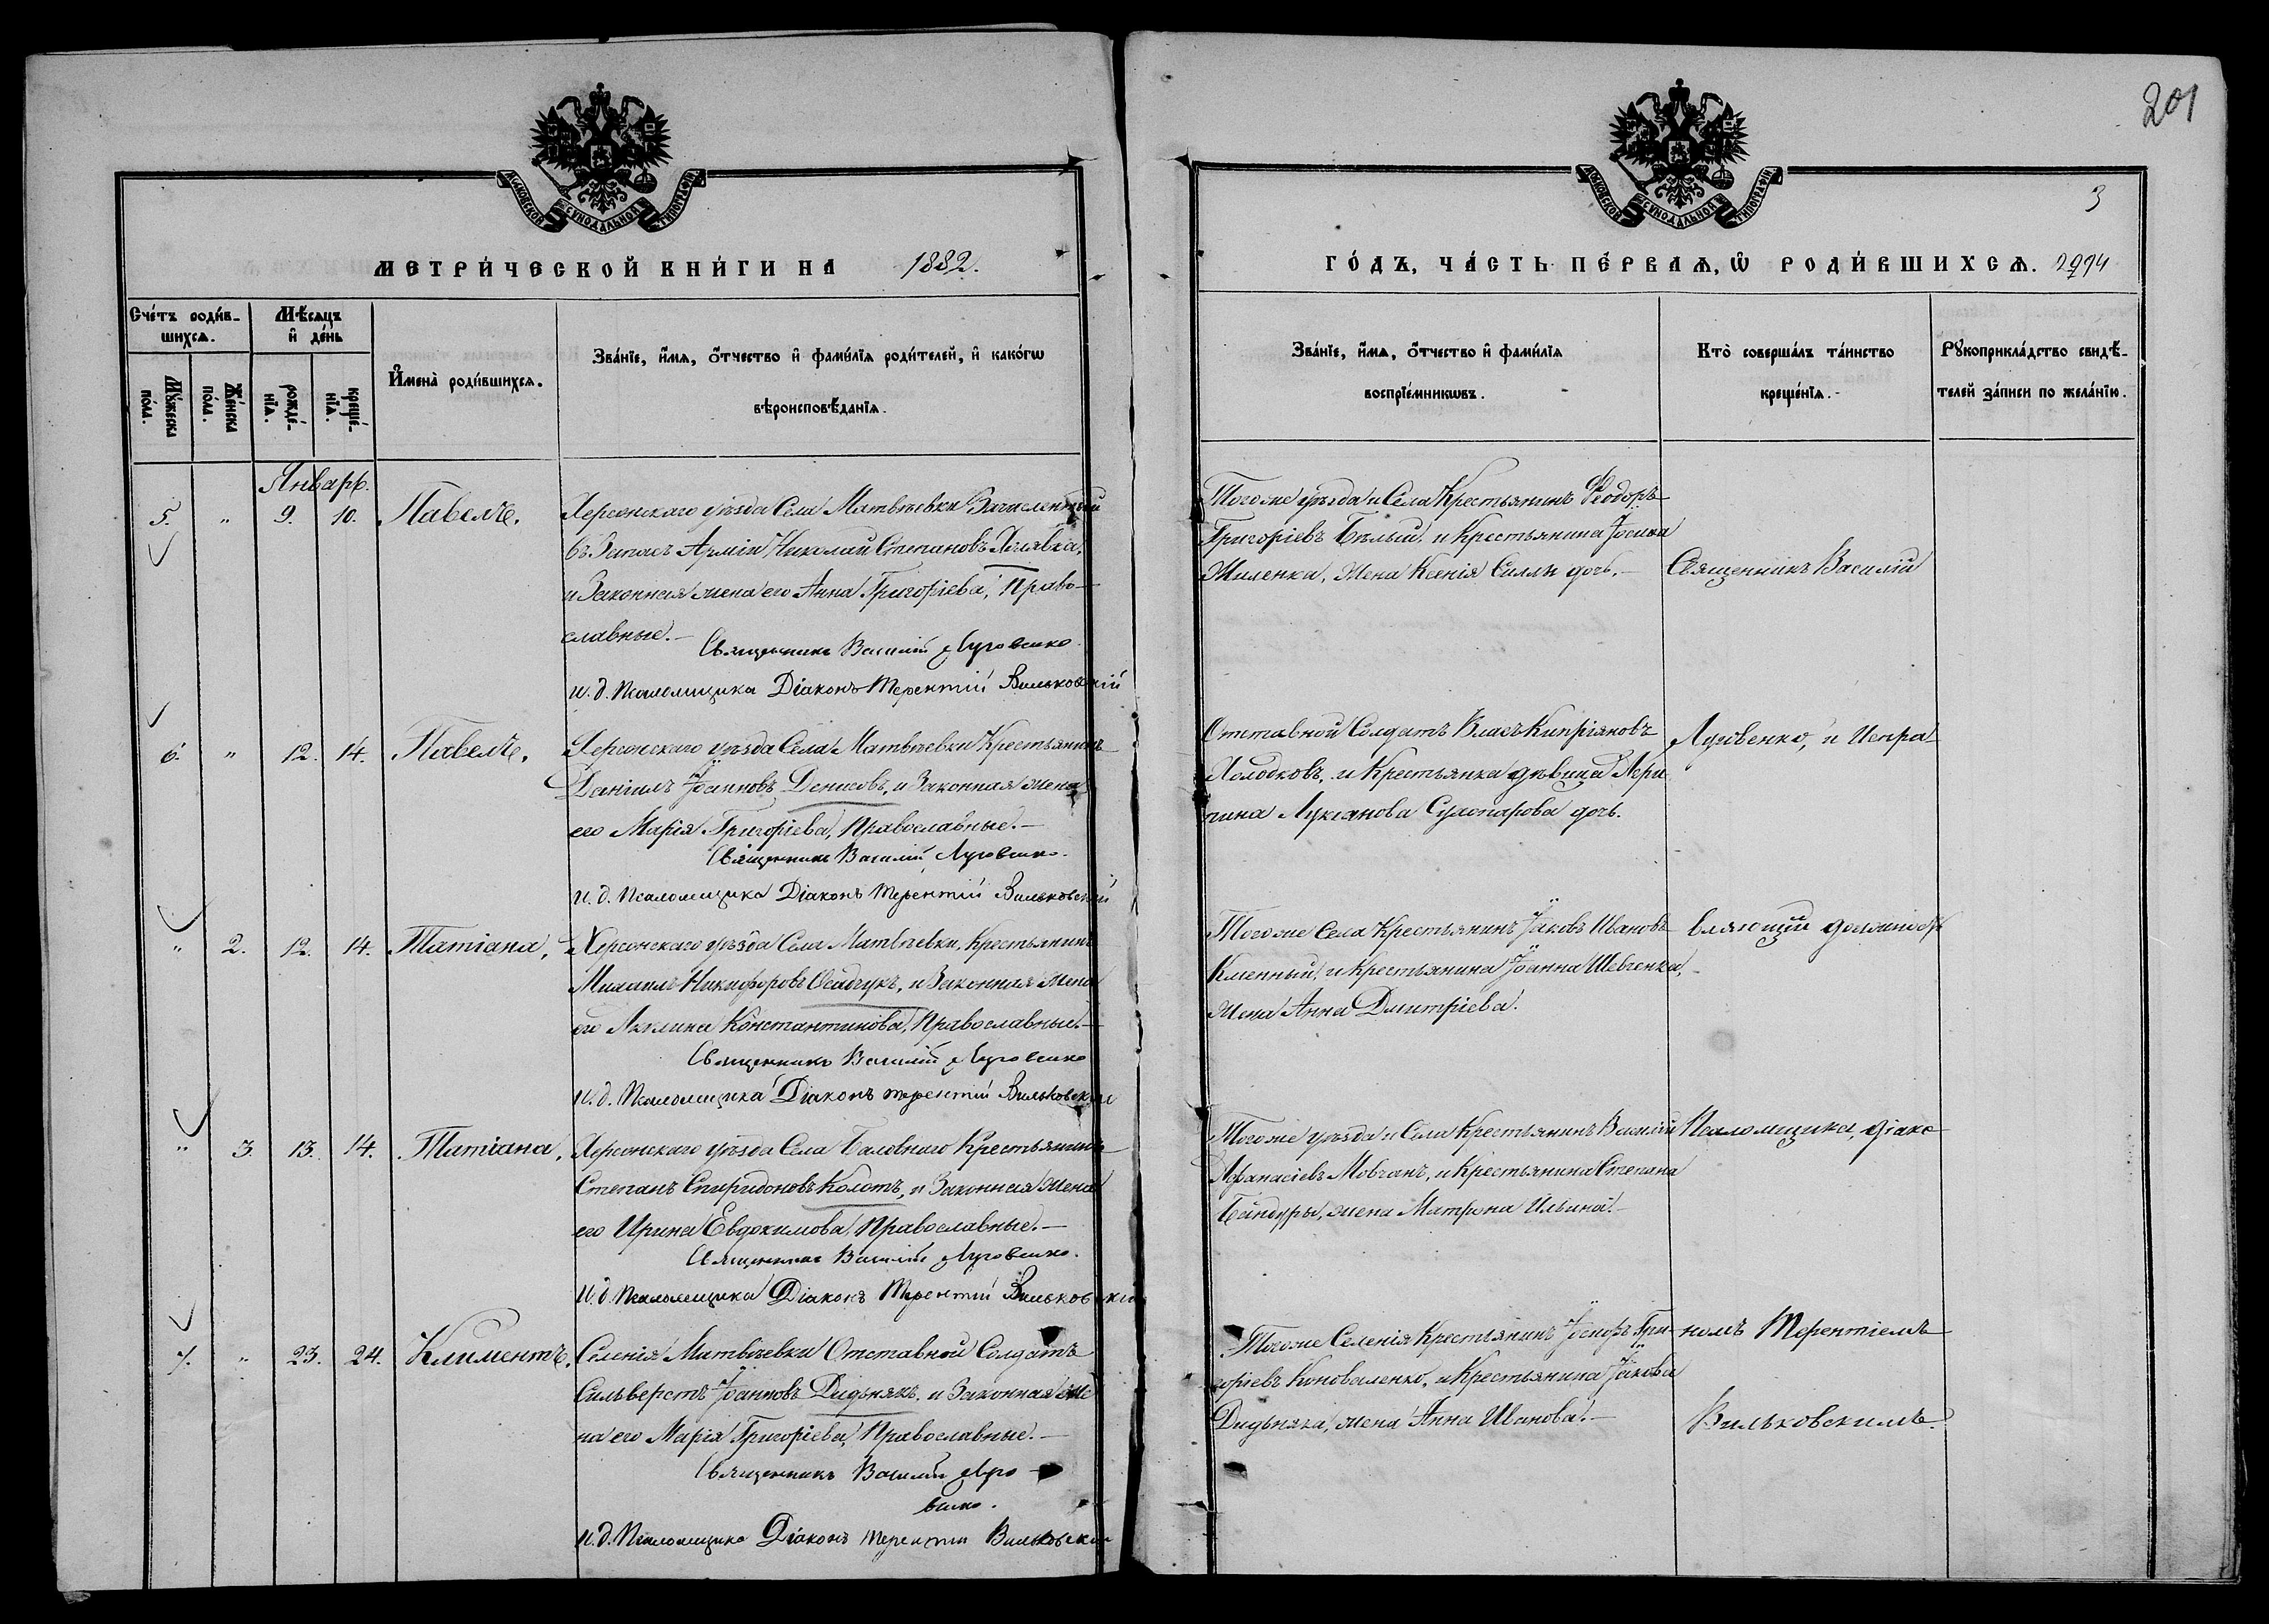 201
МОСКОВСКОЙ СѴНОДАЛЬНОЙ ТИПОГРАФІИ
МОСКОВСКОЙ СѴНОДАЛЬНОЙ ТИПОГРАФІИ
3
МЕТРИ́ЧЕСКОЙ КНИ́ГИ НА 1882.
ГО́ДЪ, ЧА́СТЬ ПЕ́РВАѦ, Ѡ҆ РОДИ́ВШИХСѦ. 2994
Сче́тъ роди́в-
шихсѧ.
Мꙋ́жеска по́ла.
Же́нска по́ла.
Мѣ́сѧцъ
и҆ де́нь
рожде́-
нїѧ.
креще́-
нїѧ.
И҆мена̀ роди́вшихсѧ.
Зва́нїе, и҆́мѧ, ѻ҆́тчество и҆ фами́лїѧ роди́телей, и҆ како́гѡ
вѣроисповѣ́данїѧ.
Зва́нїе, и҆́мѧ, ѻ҆́тчество и҆ фами́лїѧ
воспрїе́мникѡвъ.
Кто̀ соверша́лъ та́инство
креще́нїѧ.
Рꙋкоприкла́дство свидѣ́-
телей за́писи по жела́нїю.
Январь.
5. " 9. 10. Павелъ.
Херсонскаго уѣзда Села Матвѣевки Зачисленный
въ Запасъ Арміи Николай Степановъ Холявка,
и Законная жена его Анна Григоріева, Право-
славные.-
Священникъ Василій Луговенко.
и. д. Псаломщика Діаконъ Терентій Вильковскій
Того же уѣзда и Села Крестьянинъ Ѳеодоръ
Григоріевъ Бѣлый, и Крестьянина Іосифа
Жиленка, жена Ксенія Силли дочь.-
Священникъ Василій
6. " 12. 14. Павелъ.
Херсонскаго уѣзда Села Матвѣевки Крестьянинъ
Даніилъ Іоанновъ Денисовъ, и Законная жена
его Марія Григоріева, Православные.-
Священникъ Василій Луговенко.
и. д. Псаломщика Діаконъ Терентій Вильковскій
Отставной Солдатъ Власъ Кипріяновъ
Холодковъ, и Крестьянка дѣвица Агри
пина Лукіанова дочь.
Луговенко, и Испра-
" 2. 12. 14. Татіана,
Херсонскаго уѣзда Села Матвѣевки, Крестьянинъ
Михаилъ Никифоровъ Осадчукъ, и Законная жена
его Акилина Константинова, Православные.-
Священникъ Василій Луговенко
и. д. Псаломщика Діаконъ Терентій Вильковскій
Того же Села Крестьянинъ Іаковъ Ивановъ
Кленный, и Крестьянина Іоанна Шевченка,
жена Анна Дмитріева.
вляющій должность
" 3. 13. 14. Татіана,
Херсонскаго уѣзда Села Баловнаго Крестьянинъ
Степанъ Спиридоновъ Колотъ, и Законная жена
его Ирина Евдокимова, Православные.-
Священникъ Василій Луговенко.
И. д. Псаломщика Діаконъ Терентій Вильковскій
Того же уѣзда и Села Крестьянинъ Василій
Афанасіевъ Мовчанъ, и Крестьянина Степана
Бандуры, жена Матрона Ильина.-
Псаломщика, діако-
7. " 23. 24. Климентъ,
Селенія Матвѣевки Отставной Солдатъ
Сильверстъ Іоанновъ Дидынякъ, и Законная же
на его Марія Григоріева, Православные.-
Священникъ Василій Луго
венко.
и. д. Псаломщика Діаконъ Терентій Вильковскій
Того же Селенія Крестьянинъ Іосифъ Гри-
горіевъ Коноваленко, и Крестьянина Іакова
Дидыняка, жена Анна Иванова.-
номъ Терентіемъ
Вильковскимъ.